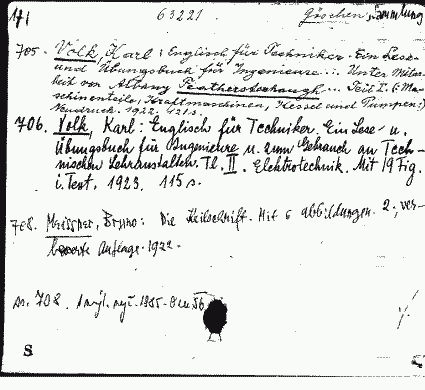 171 63221 Göschen, Sammlung
705. Volk, Karl: Englisch für Techniker. Ein Lese-
und Übungsbuch für Ingenieure ... Unter Mitar-
beit von Albany Featherstonhaugh ... Teil I. (: Ma-
schinenteile, Kraftmaschinen, Kessel und Pumpen:)
Neudruck. 1922. 121 s.
706. Volk, Karl: Englisch für Techniker. Ein Lese- u.
Übungsbuch für Ingenieure u. zum Gebrauch an Tech-
nischen Lehranstalten. Tl. II. Elektrotechnik. Mit 19 Fig.
i. Text. 1923. 115 s.
708. Meissner, Bruno: Die Keilschrift. Mit 6 Abbildungen. 2., ver-
besserte Auflage. 1922.
708.
S